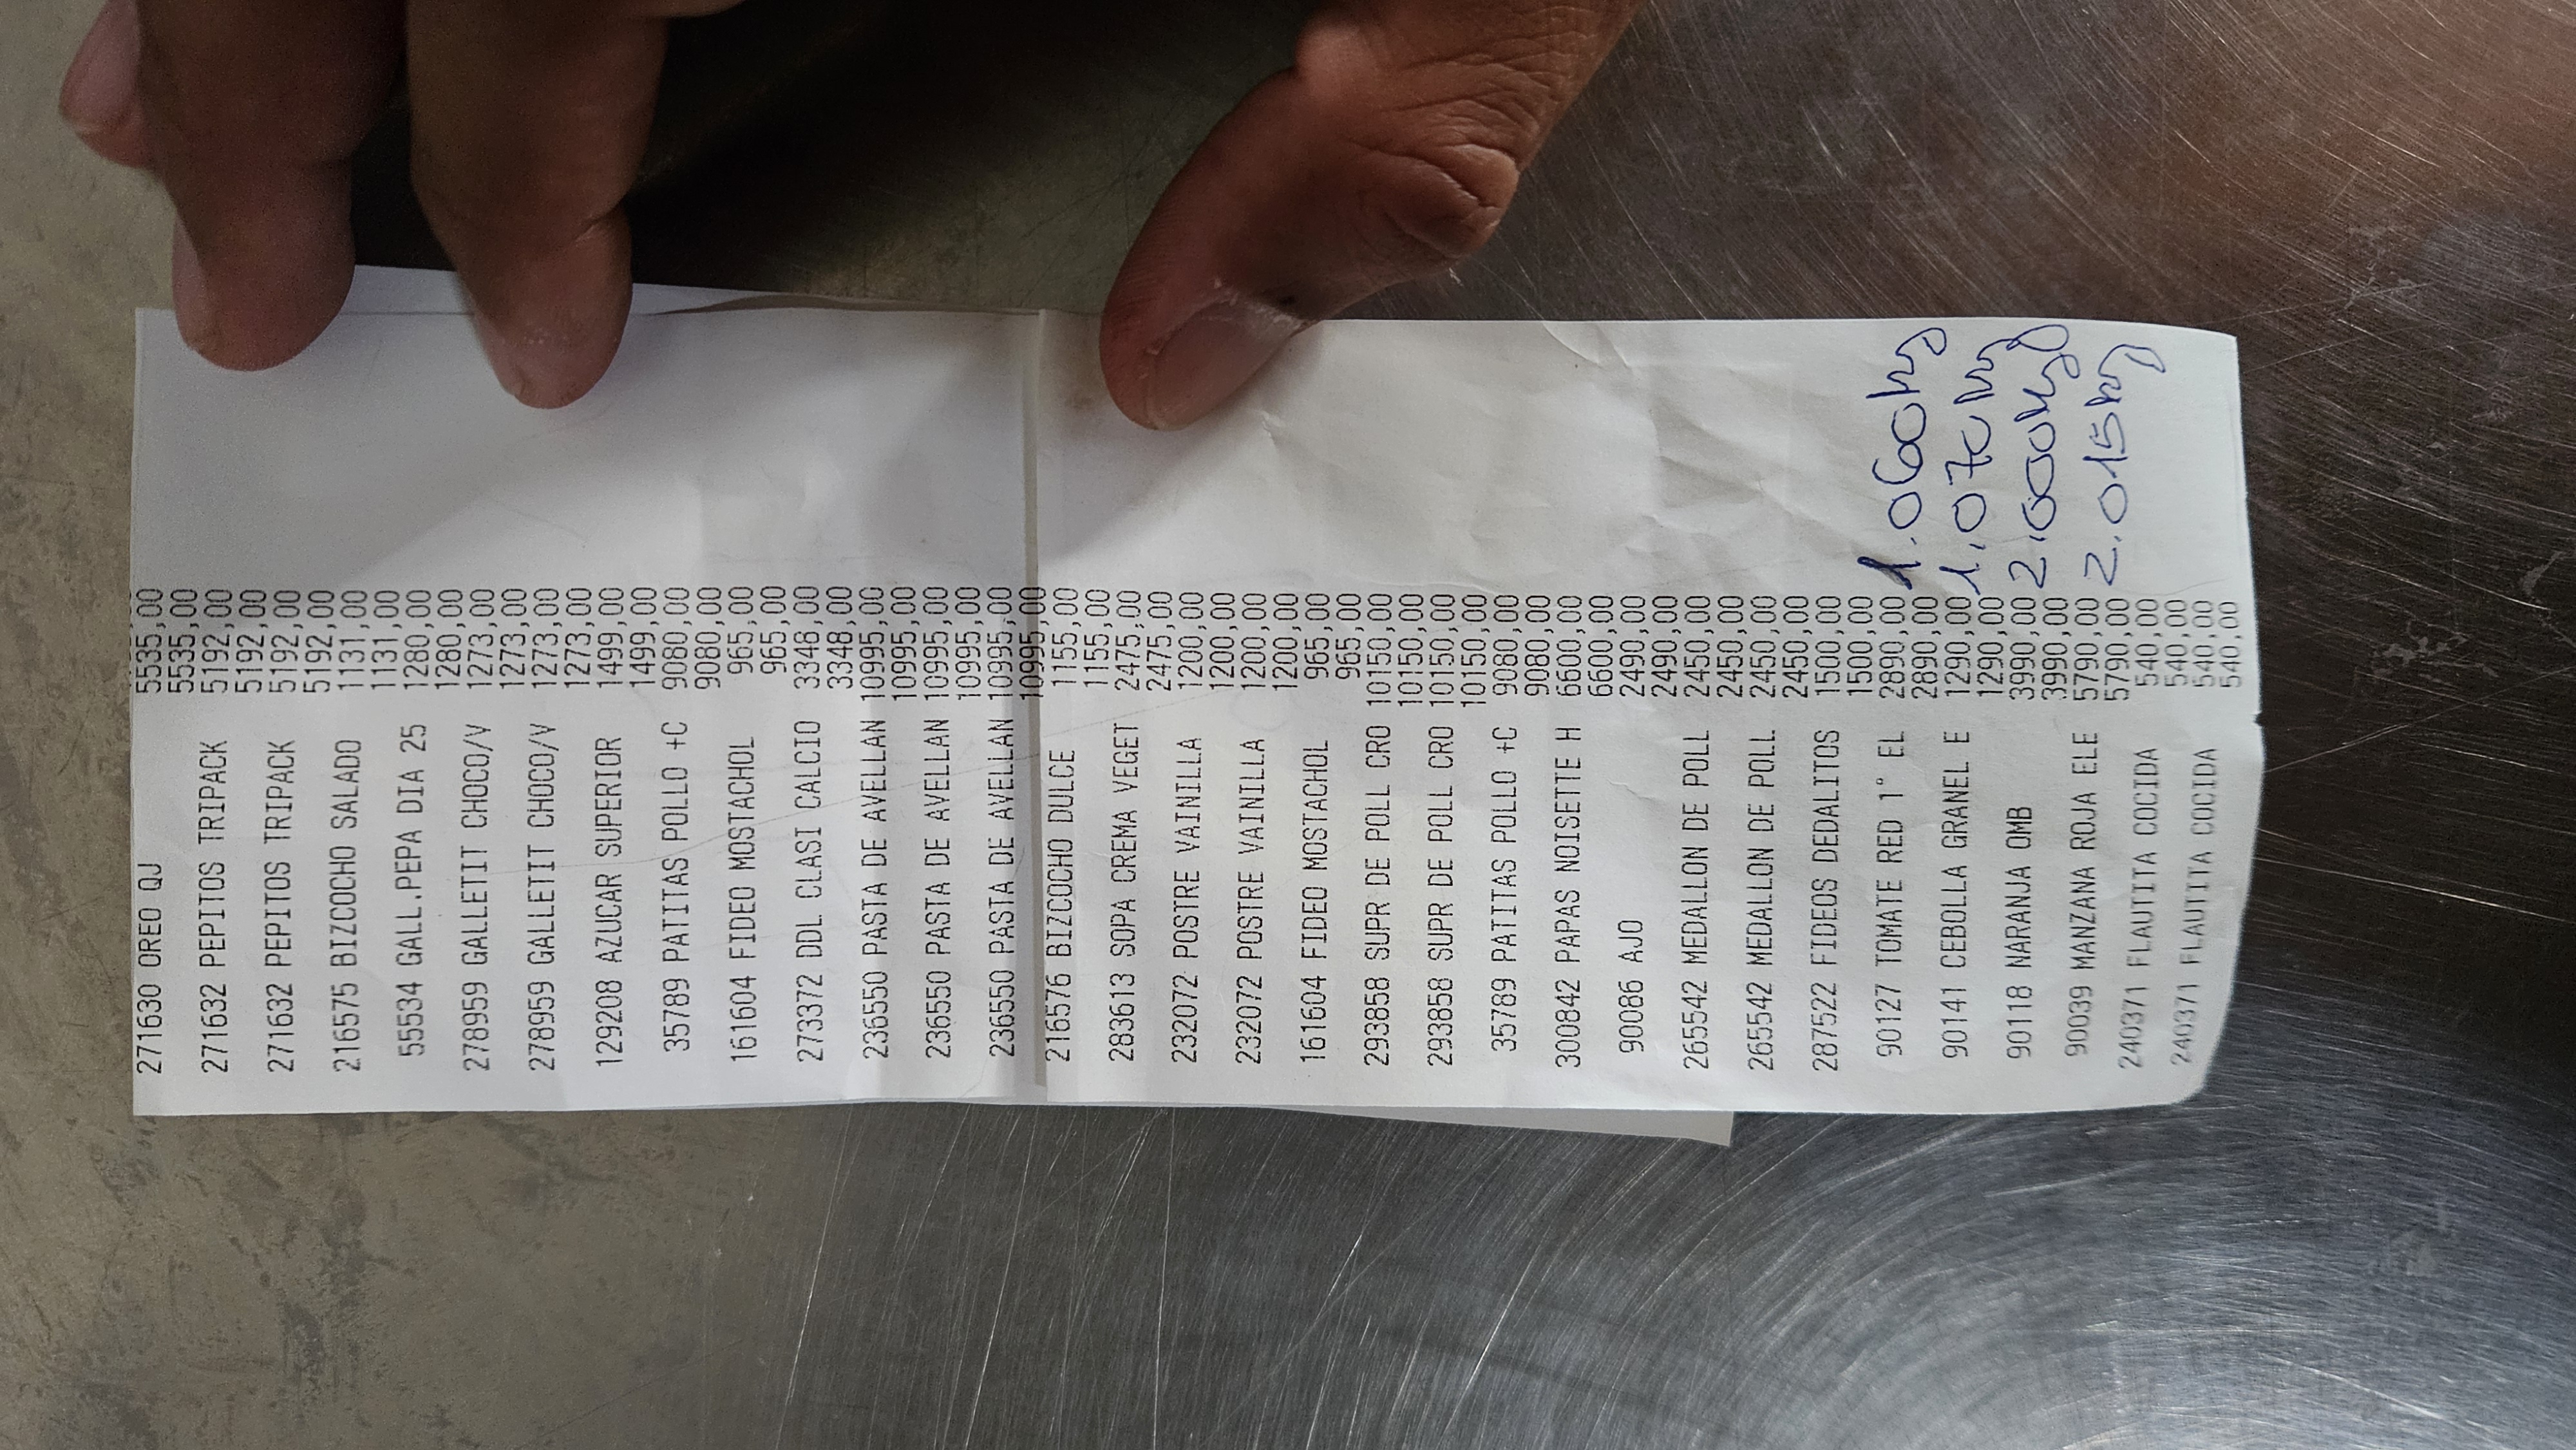 271630 OREO QJ 5535,00
5535,00
271632 PEPITOS TRIPACK 5192,00
5192,00
271632 PEPITOS TRIPACK 5192,00
5192,00
216575 BIZCOCHO SALADO 1131,00
1131,00
55534 GALL.PEPA DIA 25 1280,00
1280,00
278959 GALLETIT CHOCO/V 1273,00
1273,00
278959 GALLETIT CHOCO/V 1273,00
1273,00
129208 AZUCAR SUPERIOR 1499,00
1499,00
35789 PATITAS POLLO +C 9080,00
9080,00
161604 FIDEO MOSTACHOL 965,00
965,00
273372 DDL CLASI CALCIO 3348,00
3348,00
236550 PASTA DE AVELLAN 10995,00
10995,00
236550 PASTA DE AVELLAN 10995,00
10995,00
236550 PASTA DE AVELLAN 10995,00
10995,00
216576 BIZCOCHO DULCE 1155,00
1155,00
283613 SOPA CREMA VEGET 2475,00
2475,00
232072 POSTRE VAINILLA 1200,00
1200,00
232072 POSTRE VAINILLA 1200,00
1200,00
161604 FIDEO MOSTACHOL 965,00
965,00
293858 SUPR DE POLL CRO 10150,00
10150,00
293858 SUPR DE POLL CRO 10150,00
10150,00
35789 PATITAS POLLO +C 9080,00
9080,00
300842 PAPAS NOISETTE H 6600,00
6600,00
90086 AJO 2490,00
2490,00
265542 MEDALLON DE POLL 2450,00
2450,00
265542 MEDALLON DE POLL 2450,00
2450,00
287522 FIDEOS DEDALITOS 1500,00
1500,00
90127 TOMATE RED 1° EL 2890,00 1.060kg
2890,00
90141 CEBOLLA GRANEL E 1290,00 1.070kg
1290,00
90118 NARANJA OMB 3990,00 2.000kg
3990,00
90039 MANZANA ROJA ELE 5790,00 2.015kg
5790,00
240371 FLAUTITA COCIDA 540,00
540,00
240371 FLAUTITA COCIDA 540,00
540,00